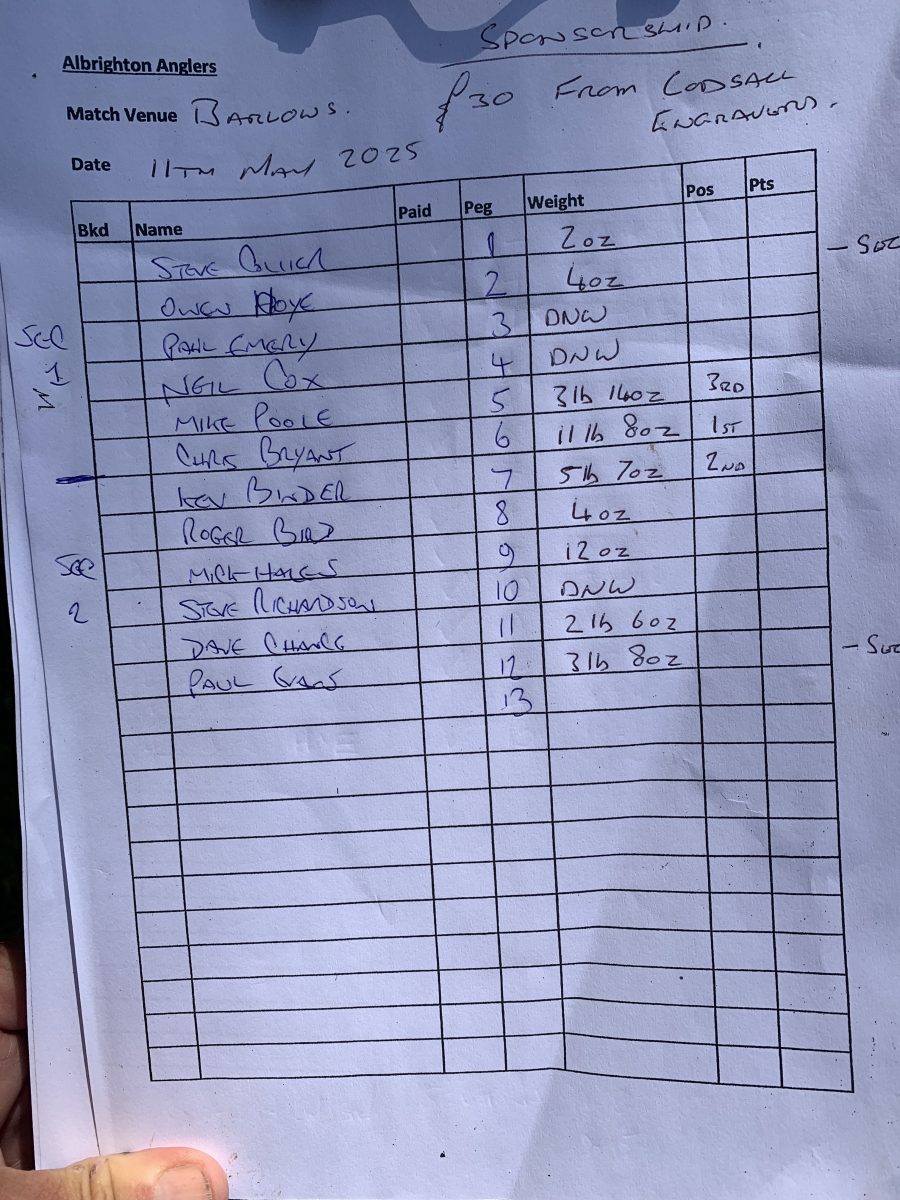 SPONSORSHIP.
Albrighton Anglers
£30 FROM CODSALL
ENGRAVORS.
Match Venue BARLOWS.
Date 11TH MAY 2025
Bkd Name Paid Peg Weight Pos Pts
STEVE 1 2oz
OWEN HOYE 2 4oz
SEC 1
PAUL EMERY 3 DNW
NEIL COX 4 DNW
MIKE POOLE 5 3lb 14oz 3RD
CHRIS BRYANT 6 11lb 8oz 1ST
KEV BINDER 7 5lb 7oz 2ND
ROGER BIRD 8 4oz
SEC 2
MICK HALES 9 12oz
STEVE RICHARDSON 10 DNW
DAVE CHANCE 11 2lb 6oz
PAUL EVANS 12 3lb 8oz
13